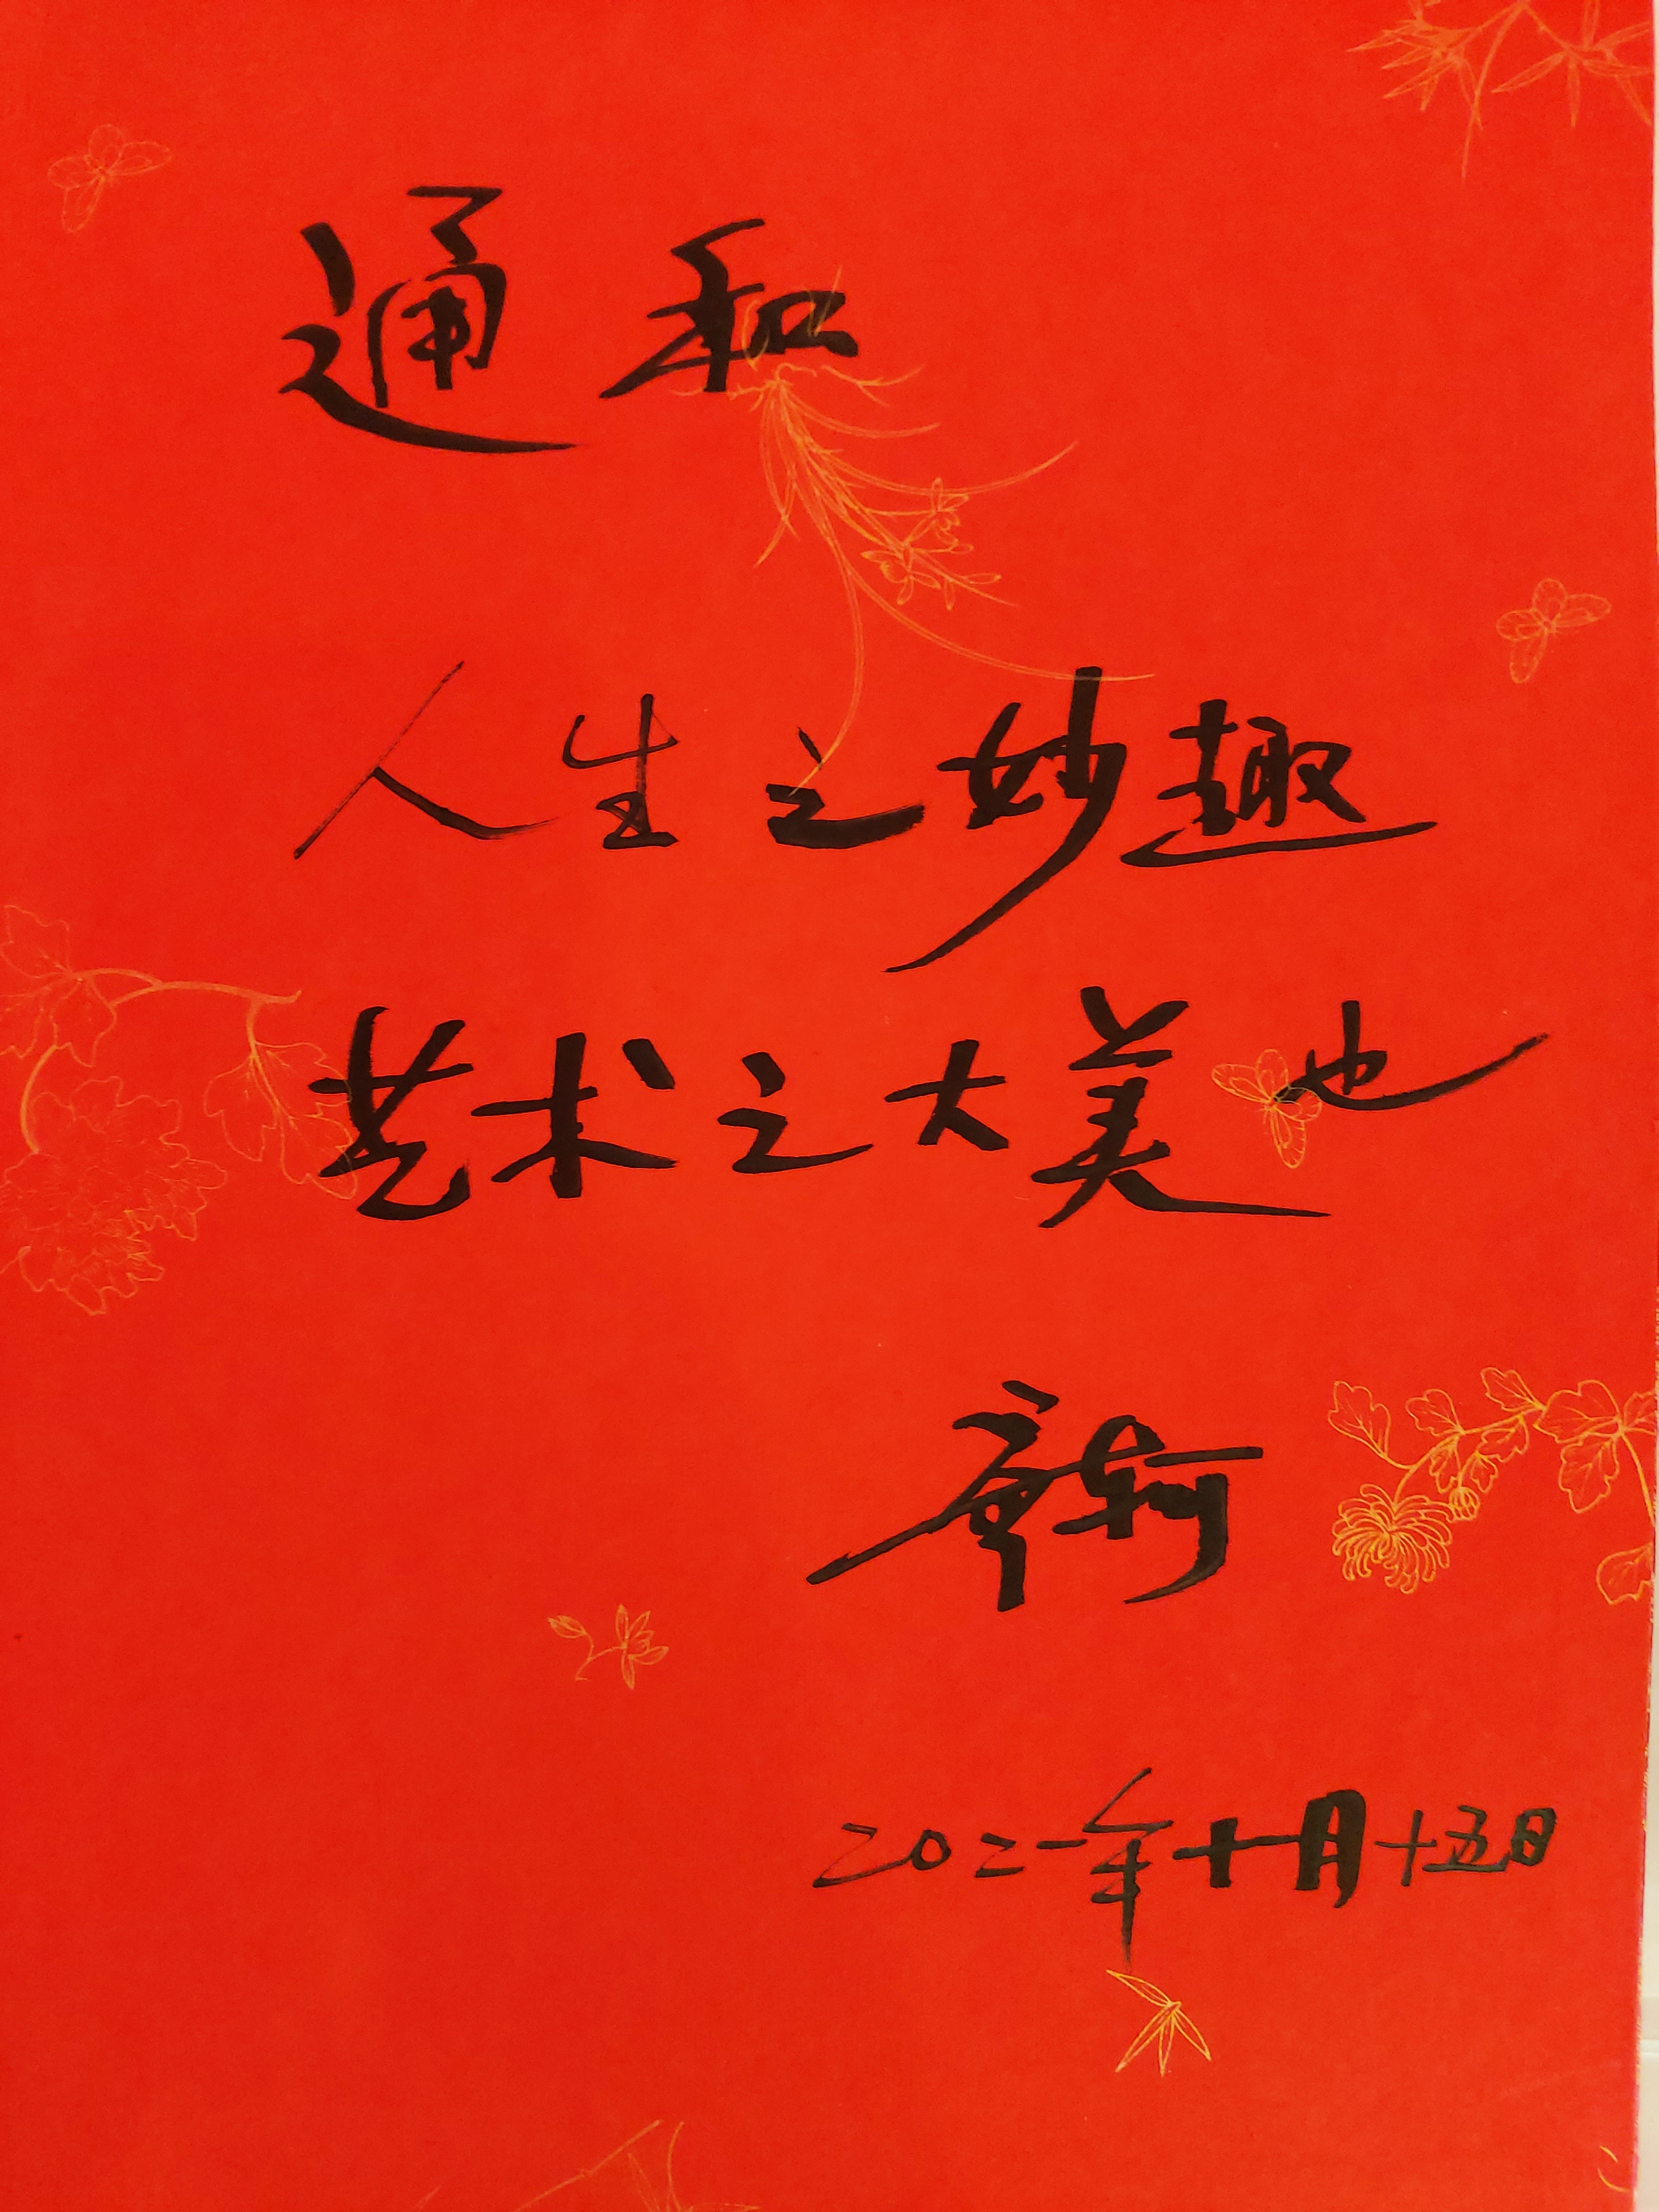 通和
人生之妙趣
艺术之大美也
轲
二〇二一年十月十五日